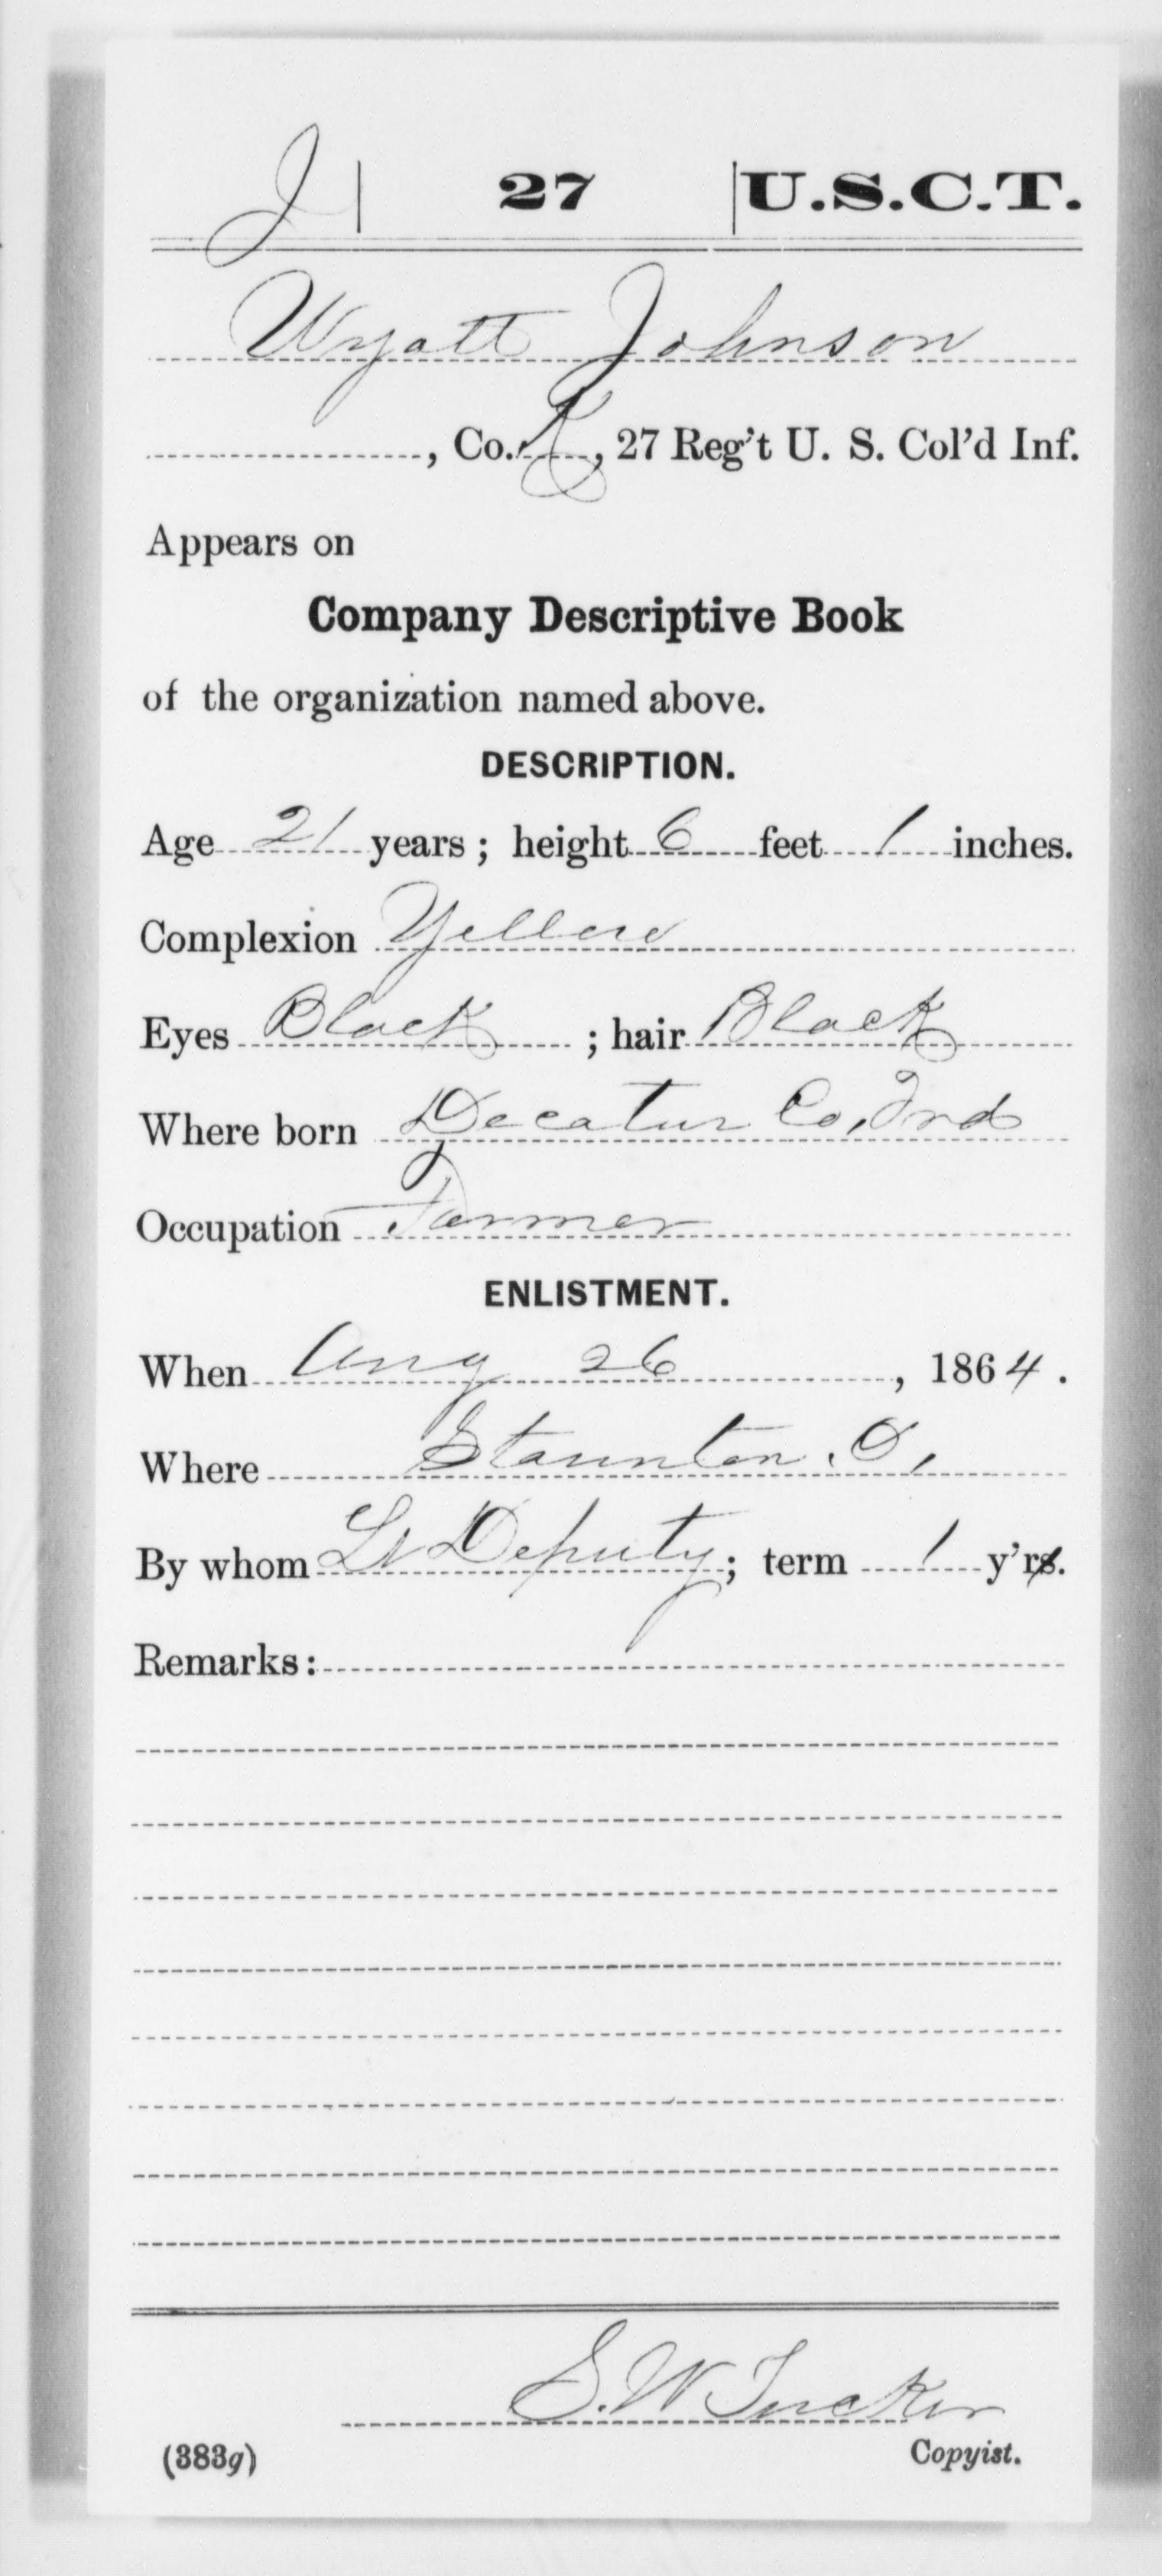 J | 27 | U.S.C.T.
Wyatt Johnson
, Co. K, 27 Reg't U. S. Col'd Inf.
Appears on
Company Descriptive Book
of the organization named above.
DESCRIPTION.
Age 21 years; height 6 feet 1 inches.
Complexion Yellow
Eyes Black; hair Black
Where born Decatur Co, Ind
Occupation Farmer
ENLISTMENT.
When Aug 26, 1864.
Where Staunton. O,
By whom Deputy; term 1 y'rs.
Remarks:
S. W. Tucker
(383g) Copyist.